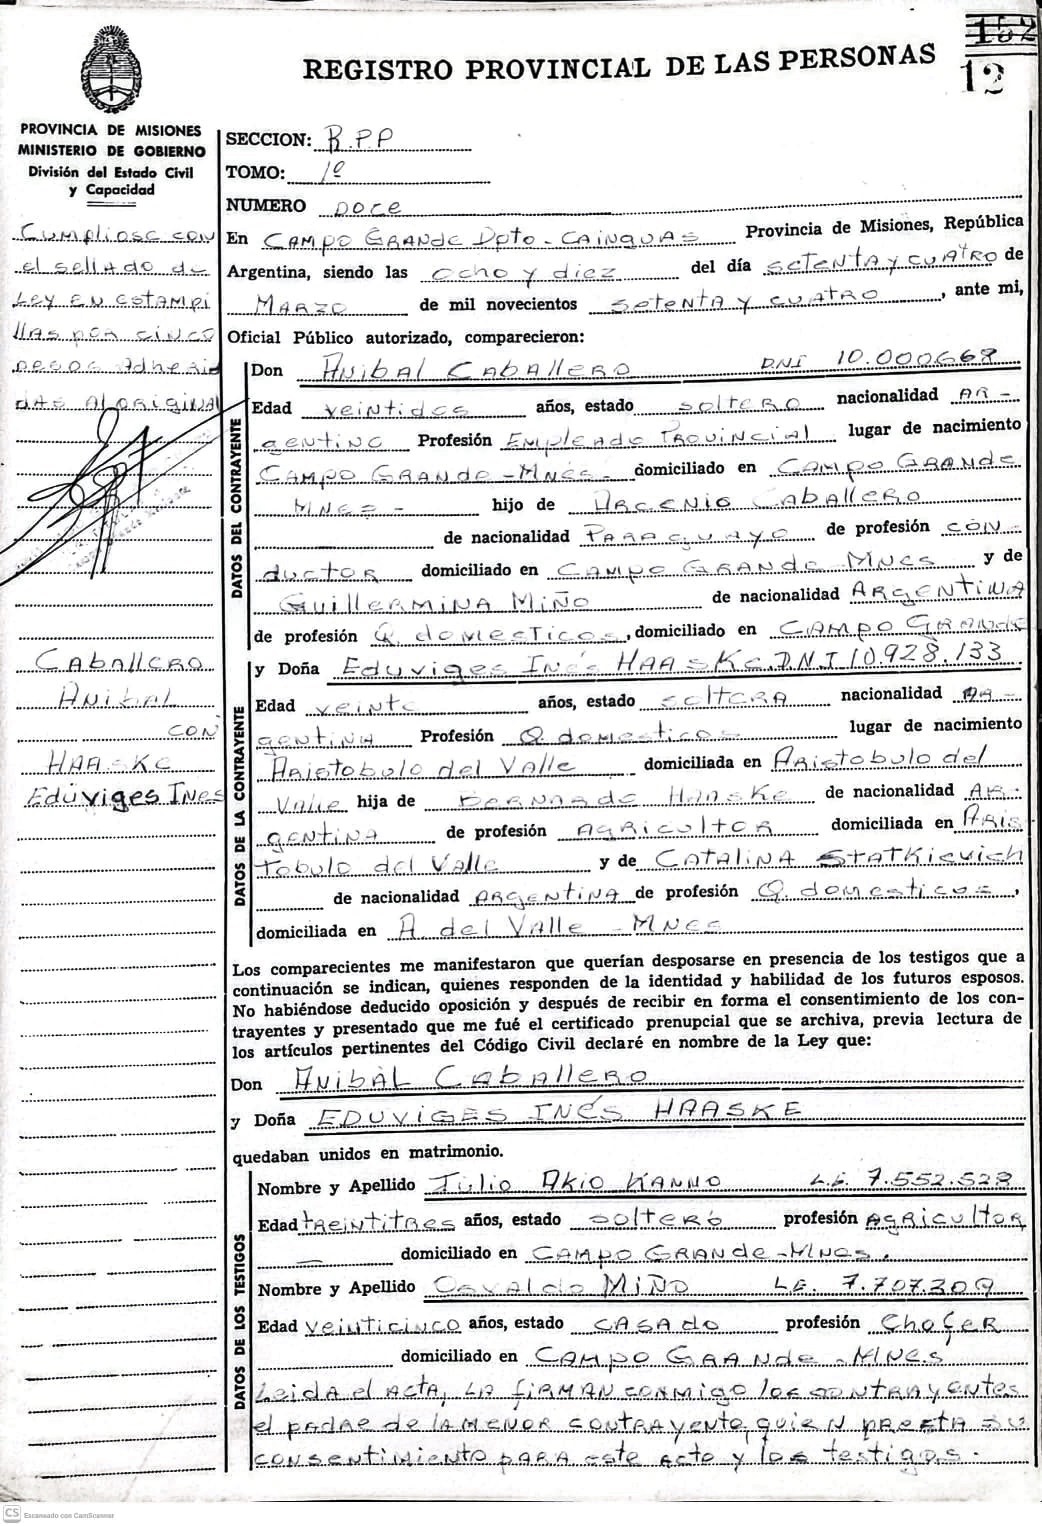 152
12
REGISTRO PROVINCIAL DE LAS PERSONAS
PROVINCIA DE MISIONES
MINISTERIO DE GOBIERNO
División del Estado Civil
y Capacidad
Cumpliose con
el sellado de
Ley en estampi
llas por cinco
pesos adherid
das al original
Caballero
Anibal
con
Haaske
Eduviges Ines
SECCION: R.P.P
TOMO: 1º
NUMERO Doce
En Campo Grande Dpto - Cainguas Provincia de Misiones, República
Argentina, siendo las ocho y diez del día setenta y cuatro de
Marzo de mil novecientos setenta y cuatro, ante mi,
Oficial Público autorizado, comparecieron:
DATOS DEL CONTRAYENTE
Don Anibal Caballero DNI 10.000.668
Edad veintidos años, estado soltero nacionalidad Ar-
gentino Profesión Empleado Provincial lugar de nacimiento
Campo Grande - Mnes - domiciliado en Campo Grande
Mnes - hijo de Arcenio Caballero
de nacionalidad Paraguayo de profesión con-
ductor domiciliado en Campo Grande Mnes y de
Guillermina Miño de nacionalidad Argentina
de profesión Q. domesticos, domiciliado en Campo Grande
DATOS DE LA CONTRAYENTE
y Doña Eduviges Inés Haaske D.N.I 10.928.133
Edad veinte años, estado soltera nacionalidad Ar-
gentina Profesión Q. domesticos lugar de nacimiento
Aristobulo del Valle domiciliada en Aristobulo del
Valle hija de Bernardo Haaske de nacionalidad Ar-
gentina de profesión Agricultor domiciliada en Aris
tobulo del Valle y de Catalina Statkievich
de nacionalidad Argentina de profesión Q. domesticos,
domiciliada en A. del Valle - Mnes
Los comparecientes me manifestaron que querían desposarse en presencia de los testigos que a
continuación se indican, quienes responden de la identidad y habilidad de los futuros esposos.
No habiéndose deducido oposición y después de recibir en forma el consentimiento de los con-
trayentes y presentado que me fué el certificado prenupcial que se archiva, previa lectura de
los artículos pertinentes del Código Civil declaré en nombre de la Ley que:
Don Anibal Caballero
y Doña Eduviges Inés Haaske
quedaban unidos en matrimonio.
DATOS DE LOS TESTIGOS
Nombre y Apellido Julio Akio Kanno L.E. 7.552.528
Edad treintitres años, estado soltero profesión Agricultor
domiciliado en Campo Grande - Mnes.
Nombre y Apellido Osvaldo Miño L.E. 7.707.309
Edad veinticinco años, estado casado profesión Chofer
domiciliado en Campo Grande - Mnes
Leida el acta, la firman conmigo los contrayentes
el padre de la menor contrayente, quien presta su
consentimiento para este acto y los testigos.
CS Escaneado con CamScanner